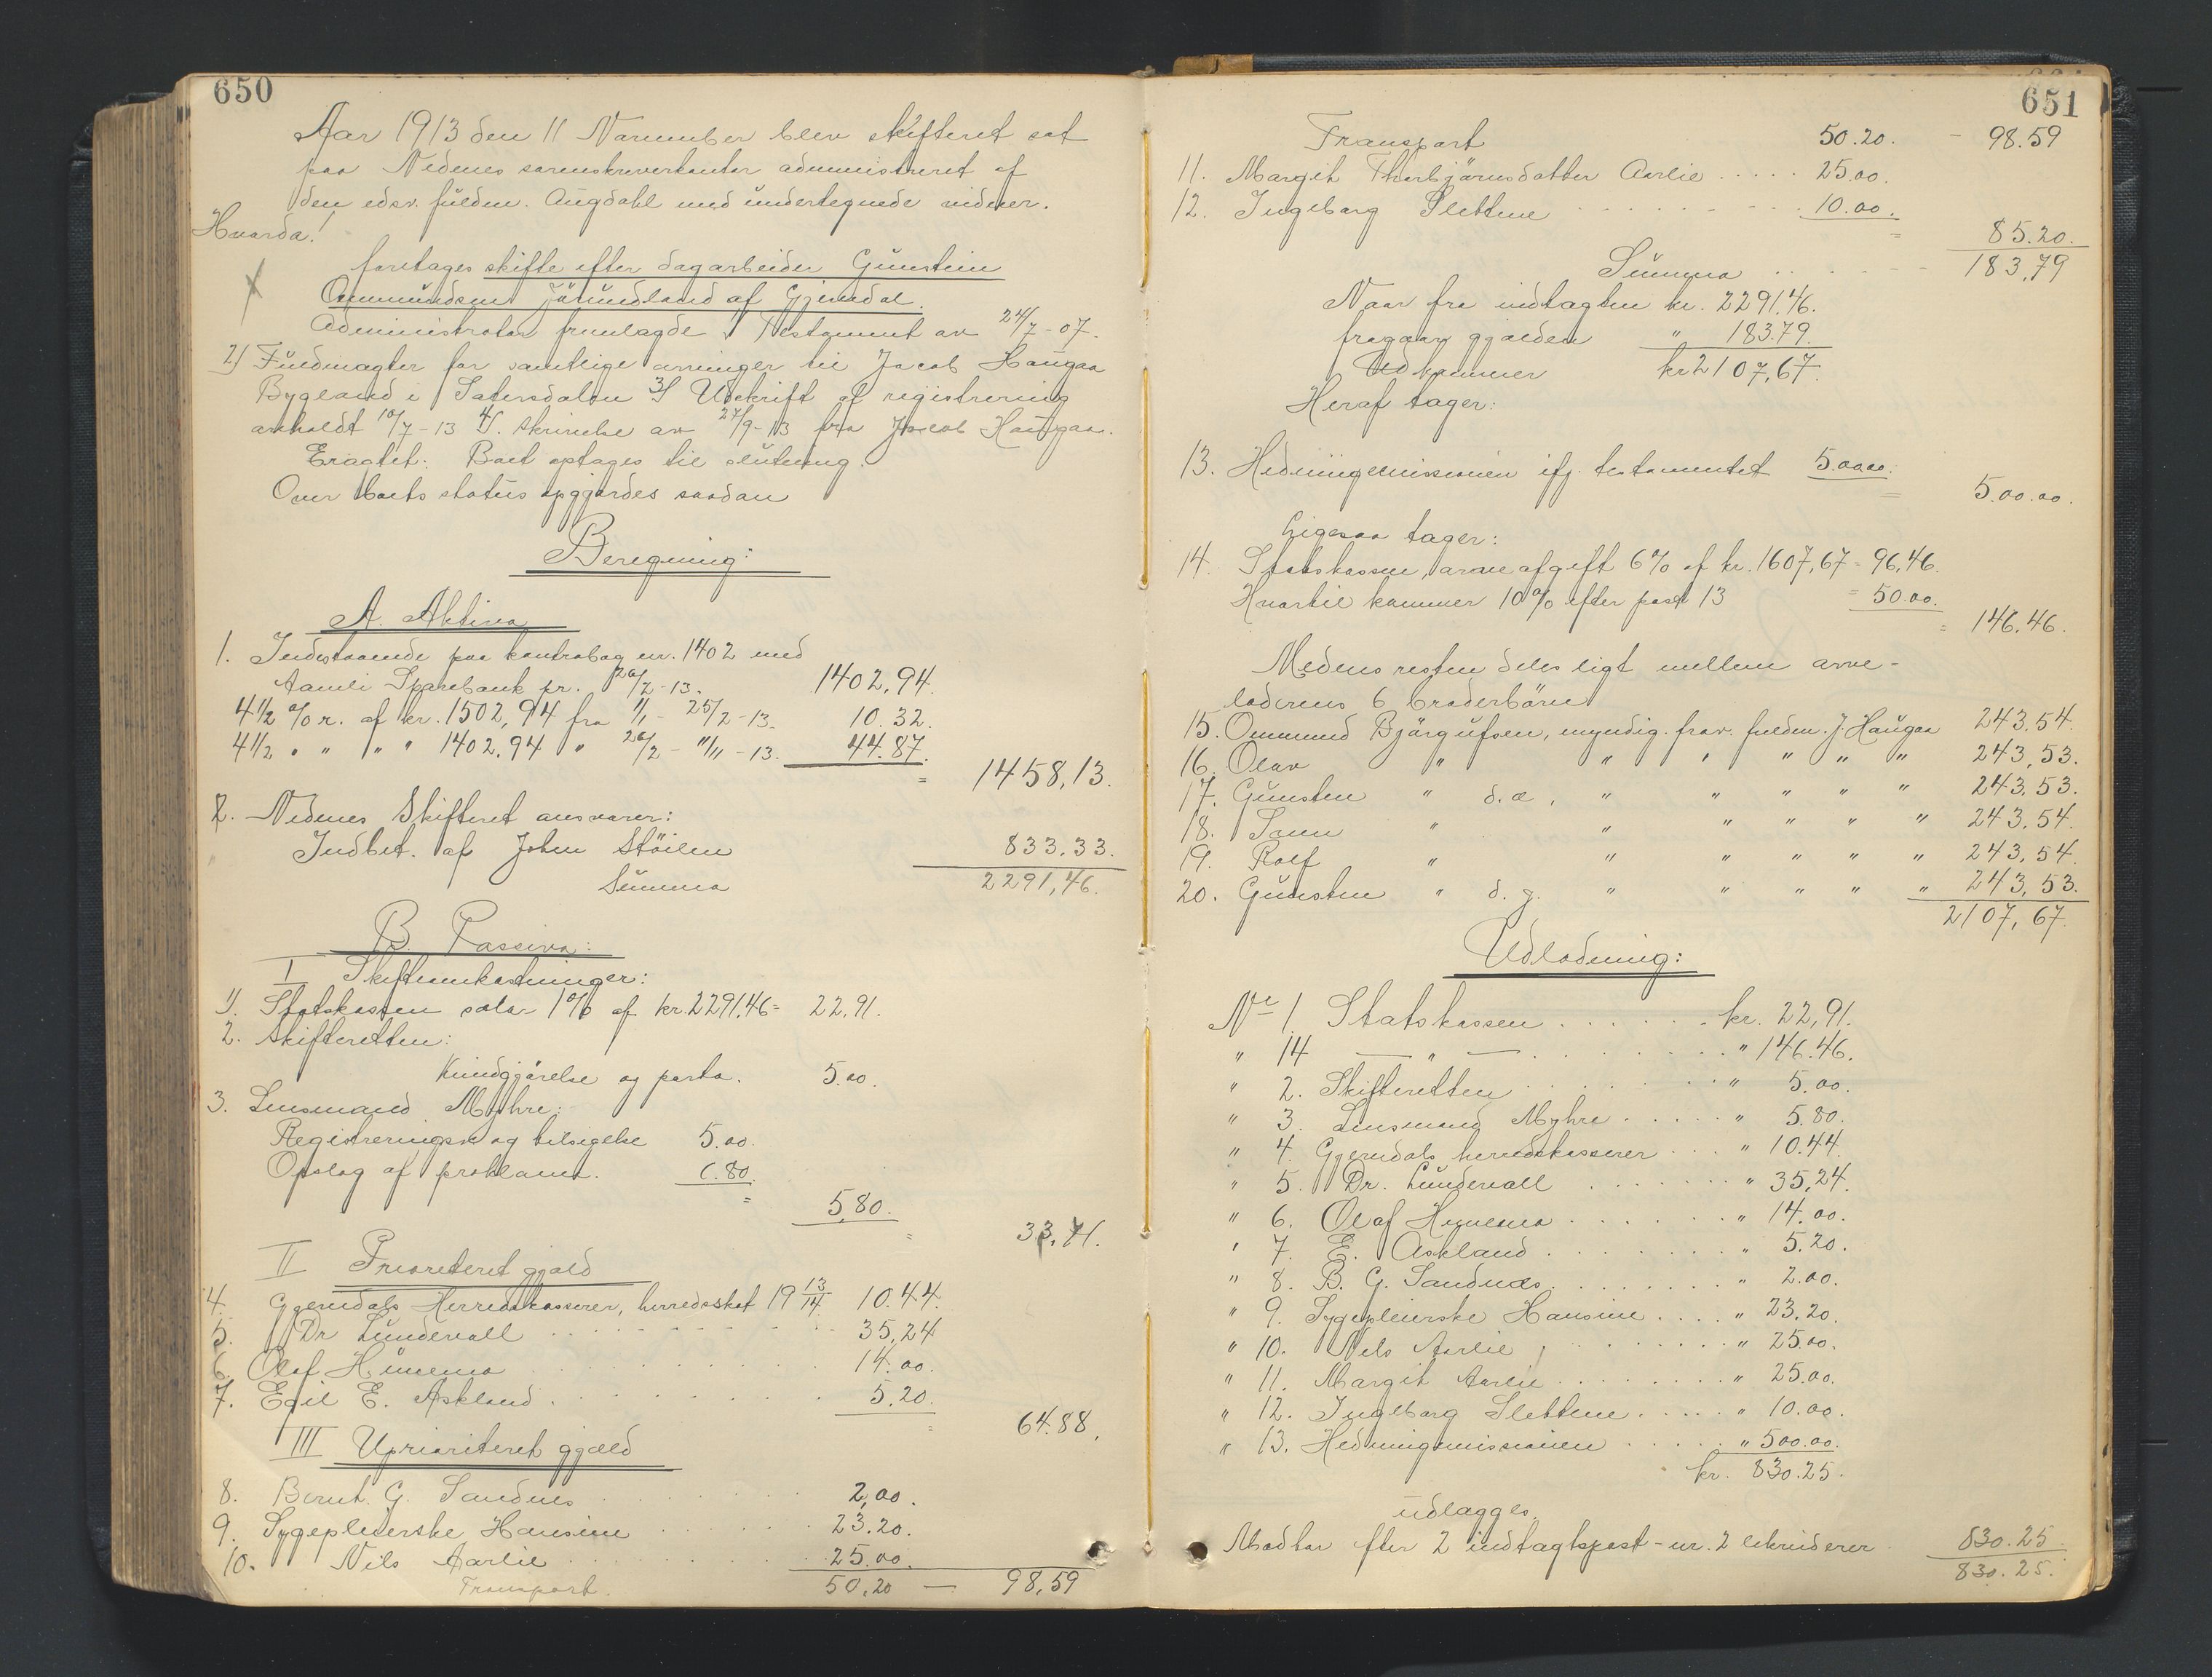 650
Aar 1913 den 11 November blev skifteret sat
paa Nedenes sorenskriverkontor administreret af
den edsv. fuldm. Augdahl med undertegnede vidner.
Hvorda!
foretages skifte efter dagarbeider Gunstein
Ommundsen Jørundland af Gjerudal.
Administrator fremlagde 1/ Testament av 24/7-07.
2/ Fuldmagter for samtlige arvinger til Jacob Haugaa
Bygland i Sætersdalen 3/ Udskrift af registrering
avholdt 10/7-13 4/. Skrivelse av 27/9-13 fra Jacob Haugaa.
Eragtet: Boet optages til slutning.
Over boets status opgjordes saadan
Beregning:
A. Aktiva
1. Indestaaende paa kontrabog nr. 1402 med
Aamli Sparebank pr. 26/2-13. 1402,94.
4 1/2 % r. af kr. 1502,94 fra 1/1 - 25/2-13. 10.32.
4 1/2 " " " " 1402.94 " 26/2 - 11/11-13. 44.87.
= 1458,13.
2. Nedenes Skifteret ansvarer:
Indbet. af John Støilen 833.33.
Summa 2291,46.
B. Passiva:
I Skifteomkostninger:
1). Statskassen salær 1% af kr. 2291,46 = 22,91.
2. Skifteretten:
Kundgjørelse og porto. 5.00.
3. Lensmand Myhre:
Registrering og tilsigelse 5.00.
Opslag af proklama. 0.80.
= 5,80.
= 33,71.
II Prioriteret gjæld
4. Gjerudals Herredskasserer, herredsskat 19 13/14 10.44.
5. Dr Lundevall 35,24
6. Olaf Hunemo 14.00.
7. Egil E. Askland. 5.20.
= 64.88.
III Uprioriteret gjæld
8. Bernt. G. Sandnes 2,00.
9. Sygepleierske Hansine 23.20.
10. Nils Aarlie 25.00.
Transport. 50,20 — 98,59
651
Transport 50.20. - 98.59
11. Margit Thorbjørnsdatter Aarlie 25.00.
12. Ingeborg Slettene 10.00.
= 85.20.
Summa 183,79
Naar fra indtægten kr. 2291.46.
fragaar gjælden " 183.79.
Udkommer kr 2107,67.
Heraf tager:
13. Hedningemissionen ifj. testamentet 500.00.
= 500.00.
Ligesaa tager:
14. Statskassen, arveafgift 6% af kr. 1607,67 = 96,46.
Hvortil kommer 10% efter post 13 = 50.00.
= 146.46.
Medens resten deles ligt mellem arve-
laderens 6 broderbørn
15. Ommund Bjørgufsen, myndig. frav. fuldm. J. Haugaa 243.54.
16. Olav " " " " " " 243,53.
17. Gunsten " d.æ, " " " " " 243.53.
18. Tom " " " " " " 243.54.
19. Rolf " " " " " " 243,54.
20. Gunsten " d. y. " " " " " 243,53.
2107,67.
Udlodning:
No 1. Statskassen kr. 22,91.
" 14 — " — " 146.46.
" 2. Skifteretten " 5.00.
" 3. Lensmand Myhre " 5.80.
" 4. Gjerudals herredskasserer " 10.44.
" 5. Dr. Lundevall " 35,24.
" 6. Olaf Hunemo " 14.00.
" 7. E. Askland " 5.20.
" 8. B. G. Sandnes " 2.00.
" 9. Sygepleierske Hansine " 23,20.
" 10. Nils Aarlie " 25.00.
" 11. Margit Aarlie " 25.00.
" 12. Ingeborg Slettene " 10.00.
" 13. Hedningemissionen " 500.00.
kr. 830.25.
udlægges.
Modtar efter 2 indtægtspost - nr. 2 830.25
830.25.